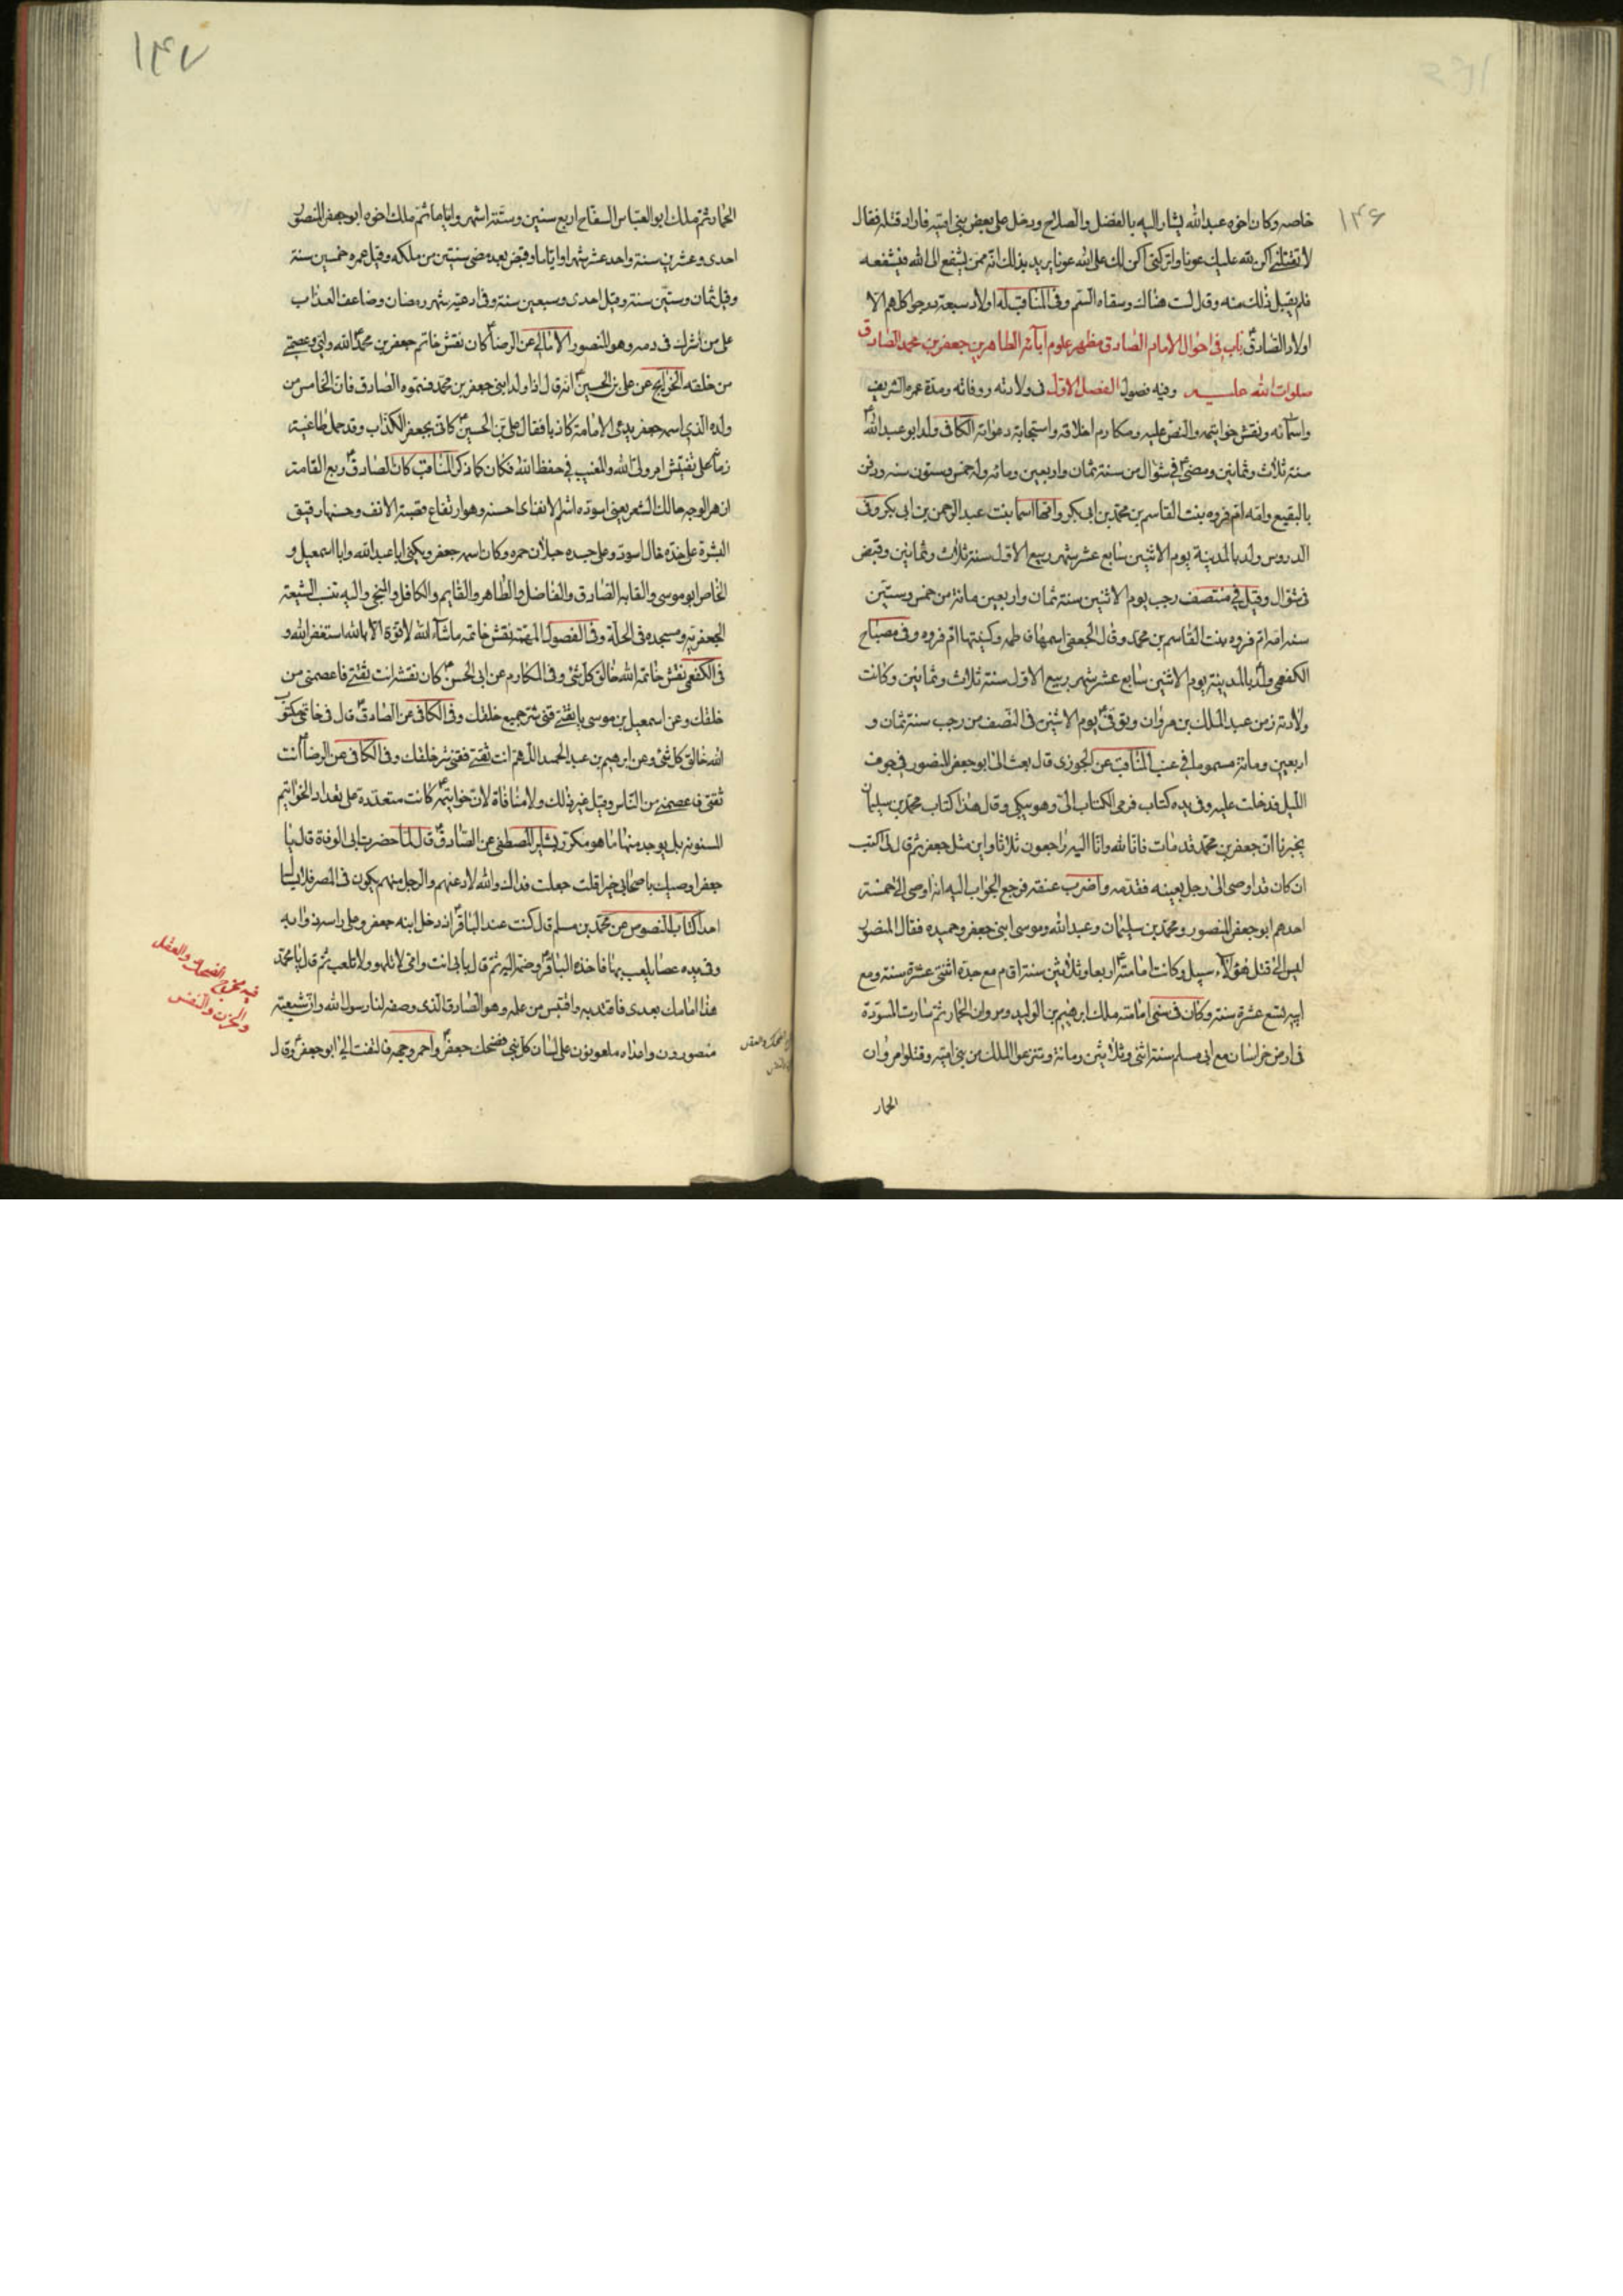 ١٤٦
خاصه وكان اخوه عبدالله يشار اليه بالفضل والصلاح ودخل على بعض بني اميه فاراد قتله فقال
لا تقتلني اكن لله عليك عونا واتركني اكن لك على الله عونا يريد بذلك انه ممن يشفع الى الله فيشفعه
فلم يقبل ذلك منه وقال لست هناك وسقاه السم وفي المناقب له اولاد سبعة درجوا كلهم الا
اولاد الصادق باب في احوال الامام الصادق مظهر علوم آبائه الطاهرين جعفر بن محمد الصادق
صلوات الله عليه وفيه فصول الفصل الاول في ولادته ووفاته ومدة عمره الشريف
واسمائه ونقش خواتيمه والنص عليه ومكارم اخلاقه واستجابة دعواته الكافي ولد ابو عبدالله
سنة ثلاث وثمانين ومضى في شوال من سنة ثمان واربعين ومائه وله خمس وستون سنه ودفن
بالبقيع وامه ام فروه بنت القاسم بن محمد بن ابي بكر وامها اسما بنت عبد الرحمن بن ابي بكر وفي
الدروس ولد بالمدينة يوم الاثنين سابع عشر شهر ربيع الاول سنة ثلاث وثمانين وقبض
في شوال وقيل في منتصف رجب يوم الاثنين سنة ثمان واربعين مائة من خمس وستين
سنه امه ام فروه بنت القاسم بن محمد وقال الجعفي اسمها فاطمه وكنيتها ام فروه وفي مصباح
الكفعمي ولد بالمدينة يوم الاثنين سابع عشر شهر ربيع الاول سنة ثلاث وثمانين وكانت
ولادته زمن عبد الملك بن مروان وتوفي يوم الاثنين في النصف من رجب سنة ثمان و
اربعين ومائة مسموما في عنب المناقب عن الجوزي قال بعث الي ابو جعفر المنصور في جوف
الليل فدخلت عليه وفي يده كتاب فرمى الكتاب الي وهو يبكي وقال هذا كتاب محمد بن سليمان
يخبرنا ان جعفر بن محمد قد مات فانا لله وانا اليه راجعون ثلاثا واين مثل جعفر ثم قال لي اكتب
ان كان قد اوصى الى رجل بعينه فقدمه واضرب عنقه فرجع الجواب اليه انه اوصى الى خمسة
احدهم ابو جعفر المنصور ومحمد بن سليمان وعبدالله وموسى ابني جعفر وحميده فقال المنصور
ليس الى قتل هؤلاء سبيل وكانت امامته اربعا وثلاثين سنة اقام مع جده اثنتي عشرة سنة ومع
ابيه تسع عشرة سنه وكان في سني امامته ملك ابرهيم بن الوليد ومروان الحمار ثم سارت المسودة
في ارض خراسان مع ابي مسلم سنة اثنى وثلاثين ومائة وتنزعوا الملك من بني اميه وقتلوا مروان
الحمار
١٤٧
الحمار ثم ملك ابو العباس السفاح اربع سنين وستة اشهر واياما ثم ملك اخوه ابو جعفر المنصور
احدى وعشرين سنة واحد عشر شهرا واياما وقبض بعد مضي سنتين من ملكه وقيل عمره خمسين سنة
وقيل ثمان وستين سنة وقيل احدى وسبعين سنة وفي ادعية شهر رمضان وضاعف العذاب
على من شرك في دمه وهو المنصور الامالي عن الرضا كان نقش خاتم جعفر بن محمد الله وليي وعصمتي
من خلقه الخرايج عن علي بن الحسين انه قال اذا ولد ابني جعفر بن محمد فسموه الصادق فان الخامس من
ولده الذي اسمه جعفر يدعي الامامة كاذبا فقال علي بن الحسين كاني بجعفر الكذاب وقد حمل طاغية
زمانه على تفتيش امر ولي الله والمغيب في حفظ الله فكان كما ذكر المناقب كان الصادق ربع القامة
ازهر الوجه حالك الشعر يعني اسوده اشم الانف اي احسنه وهو ارتفاع قصبة الانف وحسنها رقيق
البشرة على خده خال اسود وعلى جسده خيلان حمره وكان اسمه جعفر ويكنى ابا عبدالله وابا اسمعيل و
الخاص ابو موسى والقابه الصادق والفاضل والطاهر والقايم والكافل والمنجي واليه تنسب الشيعة
الجعفريه ومسجده في الحلة وفي الفصول المهمة نقش خاتمه ماشاء الله لا قوة الا بالله استغفر الله و
في الكفعمي نقش خاتمه الله خالق كل شئ وفي المكارم عن ابي الحسن كان نقشه انت ثقتي فاعصمني من
خلقك وعن اسمعيل بن موسى يا ثقتي قني شر جميع خلقك وفي الكافي عن الصادق قال في خاتمي مكتوب
الله خالق كل شئ وعن ابرهيم بن عبد الحميد اللهم انت ثقتي فقني شر خلقك وفي الكافي عن الرضا انت
ثقتي فاعصمني من الناس وقيل غير ذلك ولا منافاة لان خواتيمهم كانت متعددة على تعداد الخواتيم
المسنونه بل يوجد منها ما هو مكرر بشاير المصطفى عن الصادق قال لما حضرت ابي الوفاة قال يا
جعفر اوصيك باصحابي خيرا قلت جعلت فداك والله لادعنهم والرجل منهم يكون في المصر فلا يسال
احدا كتاب النصوص عن محمد بن مسلم قال كنت عند الباقر اذ دخل ابنه جعفر وعلى راسه ذوابه
وفي يده عصا يلعب بها فاخذه الباقر وضمه اليه ثم قال بابي انت وامي لا تلهو ولا تلعب ثم قال يا محمد
هذا امامك بعدي فاقتد به واقتبس من علمه وهو الصادق الذي وصفه لنا رسول الله وان شيعته
منصورون واعداه ملعونون على لسان كل نبي فضحك جعفر واحمر وجهه فالتفت الي ابو جعفر وقال
فيه مخرج الضحك والعقل
والحزن والنفس